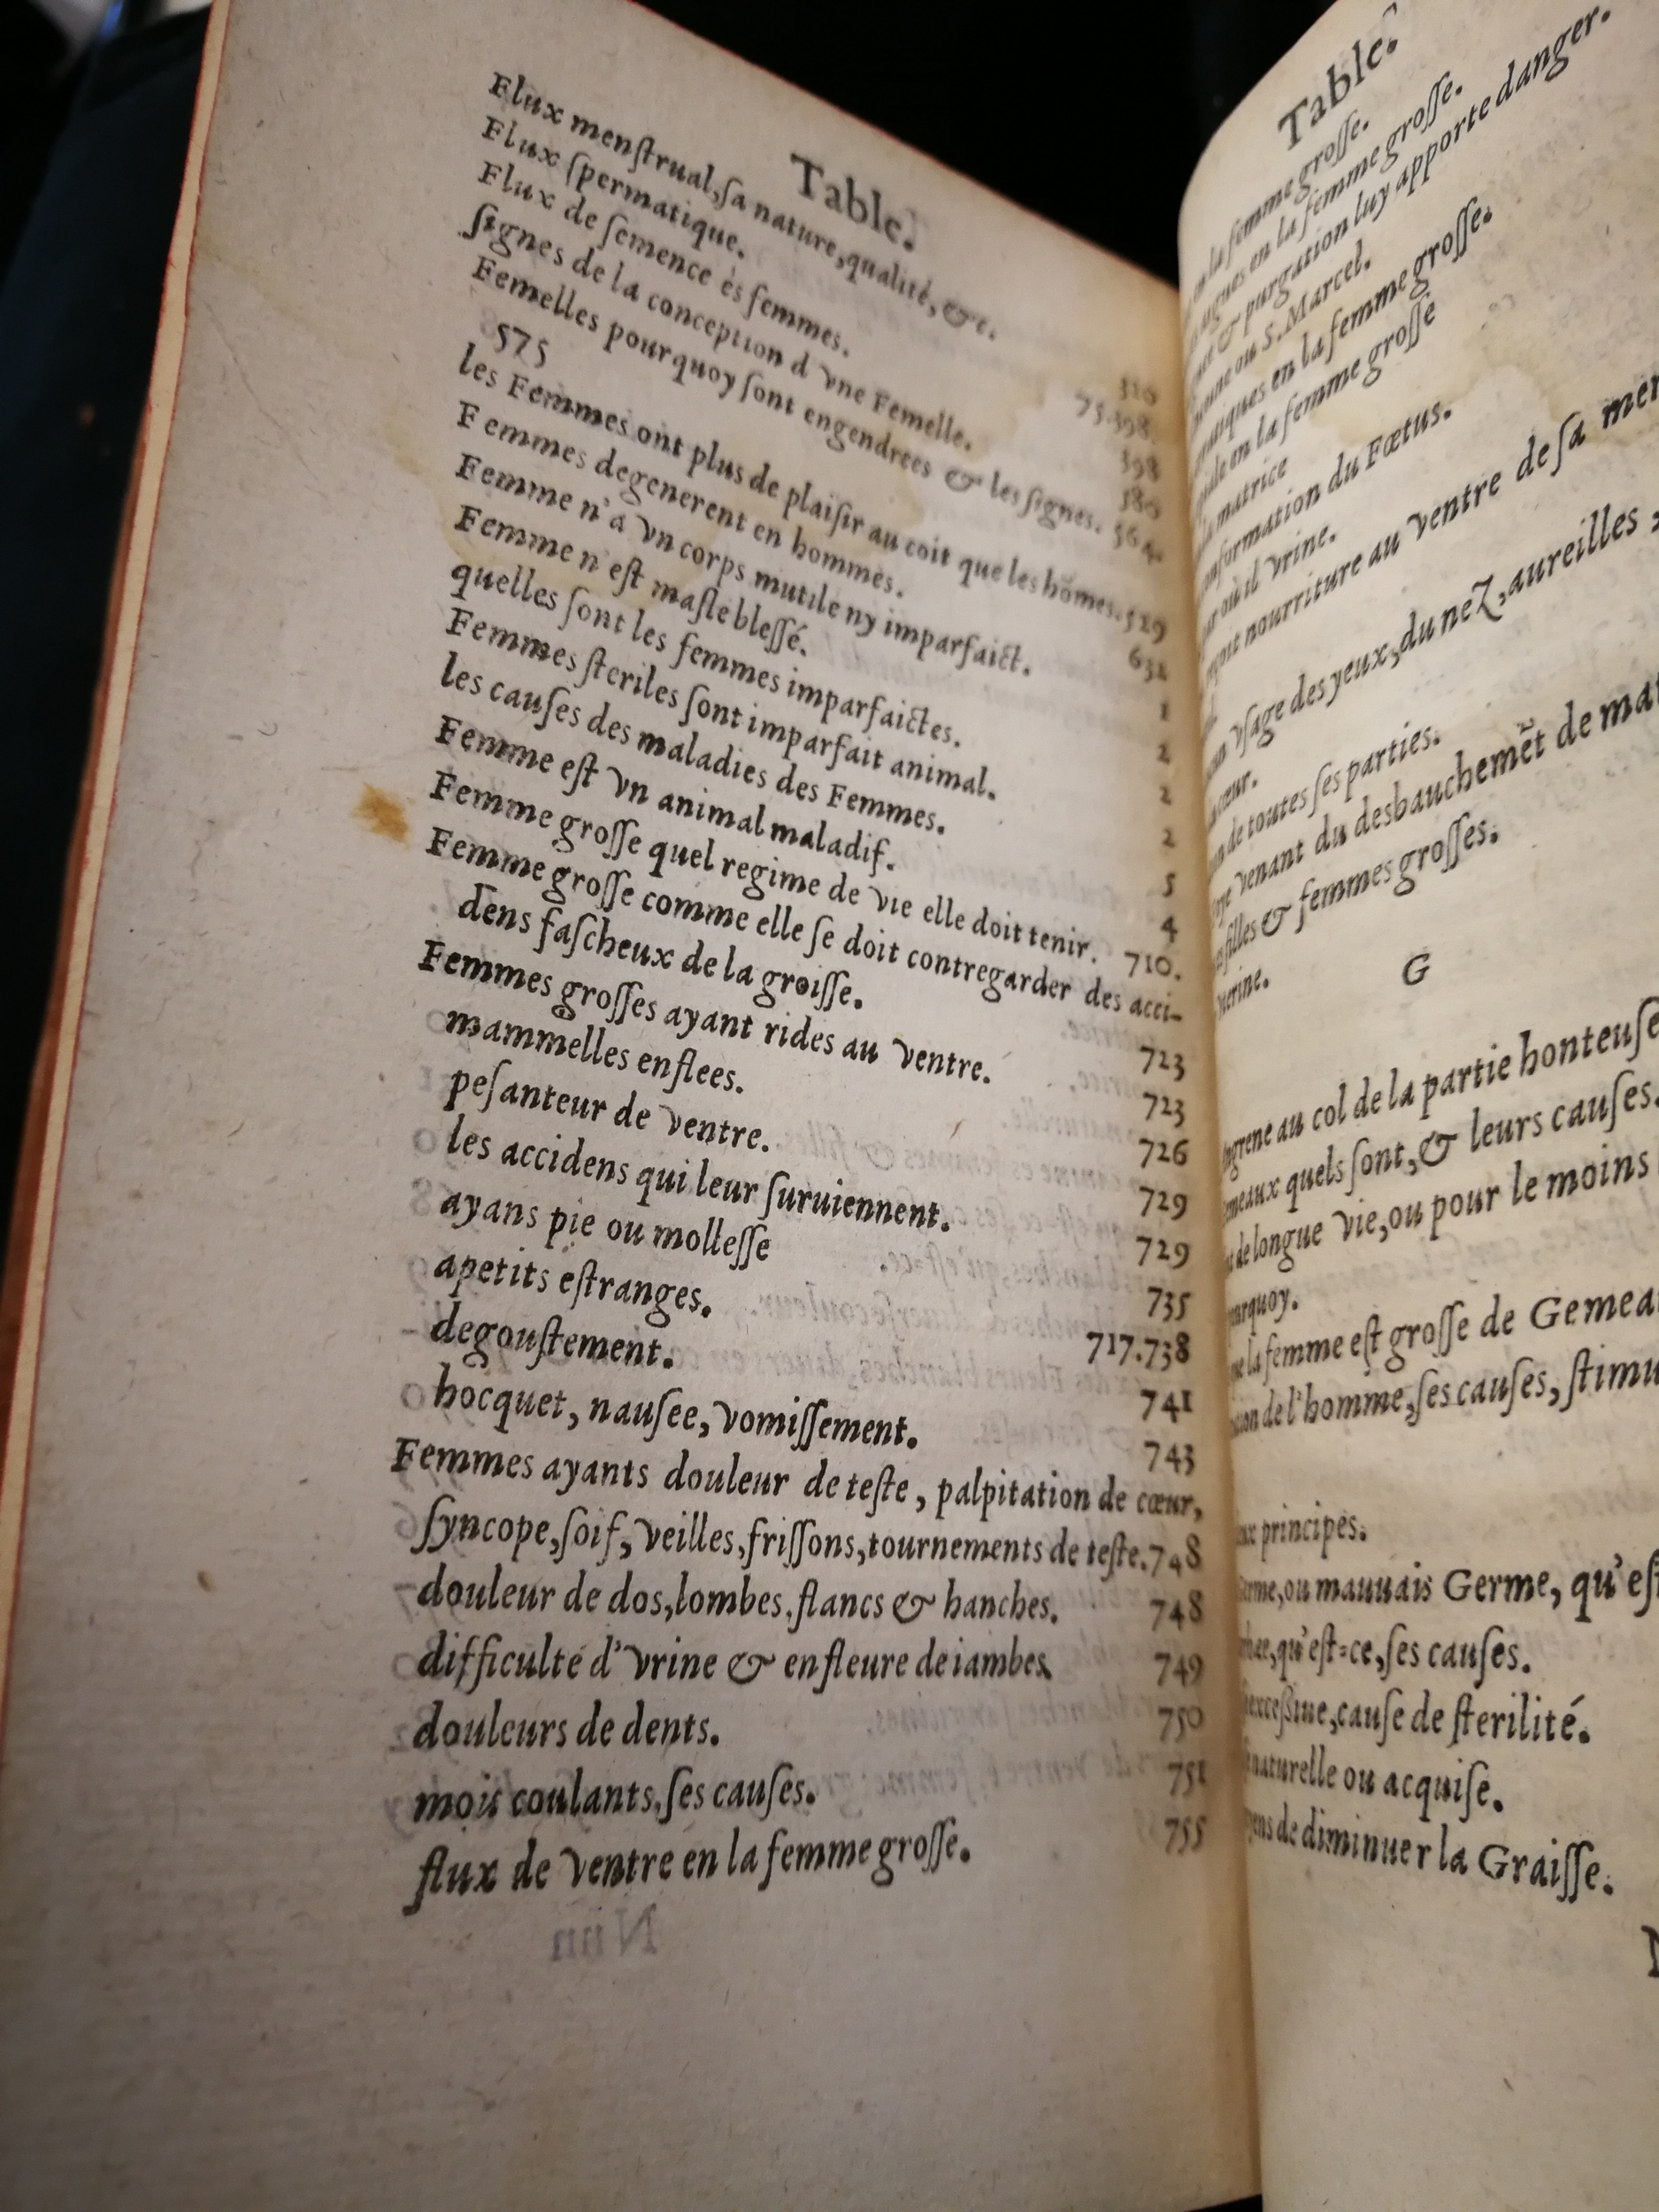 Table.
Flux menſtrual, ſa nature, qualité, &c. 310
Flux ſpermatique. 75.398.
Flux de ſemence és femmes. 398
ſignes de la conception d'vne Femelle. 380
Femelles pourquoy ſont engendrees & les ſignes. 564.
575
les Femmes ont plus de plaiſir au coit que les hõmes. 529
Femmes degenerent en hommes. 632
Femme n'a vn corps mutile ny imparfaict. 1
Femme n'eſt maſle bleſſé. 2
quelles ſont les femmes imparfaictes. 2
Femmes ſteriles ſont imparfait animal. 2
les cauſes des maladies des Femmes. 5
Femme eſt vn animal maladif. 4
Femme groſſe quel regime de vie elle doit tenir. 710.
Femme groſſe comme elle ſe doit contregarder des acci-
dens faſcheux de la groiſſe. 723
Femmes groſſes ayant rides au ventre. 723
mammelles enflees. 726
peſanteur de ventre. 729
les accidens qui leur ſuruiennent. 729
ayans pie ou molleſſe 735
apetits eſtranges. 717.738
degouſtement. 741
hocquet, nauſee, vomiſſement. 743
Femmes ayants douleur de teſte, palpitation de cœur,
ſyncope, ſoif, veilles, friſſons, tournements de teſte. 748
douleur de dos, lombes, flancs & hanches. 748
difficulté d'vrine & enfleure de iambes. 749
douleurs de dents. 750
mois coulants, ſes cauſes. 751
flux de ventre en la femme groſſe. 755
Table.
en la femme groſſe.
en la femme groſſe.
& purgation luy apporte danger.
ou S. Marcel.
en la femme groſſe.
en la femme groſſe
matrice
formation du Fœtus.
par où il vrine.
nourriture au ventre de ſa
vſage des yeux, du nez, aureilles,
cœur.
de toutes ſes parties.
venant du desbauchemẽt de
filles & femmes groſſes.
G
au col de la partie honteuſe
quels ſont, & leurs cauſes.
de longue vie, ou pour le moins
la femme eſt groſſe de
de l'homme, ſes cauſes,
principes.
ou mauuais Germe, qu'eſt
qu'eſt-ce, ſes cauſes.
cauſe de ſterilité.
naturelle ou acquiſe.
de diminuer la Graiſſe.